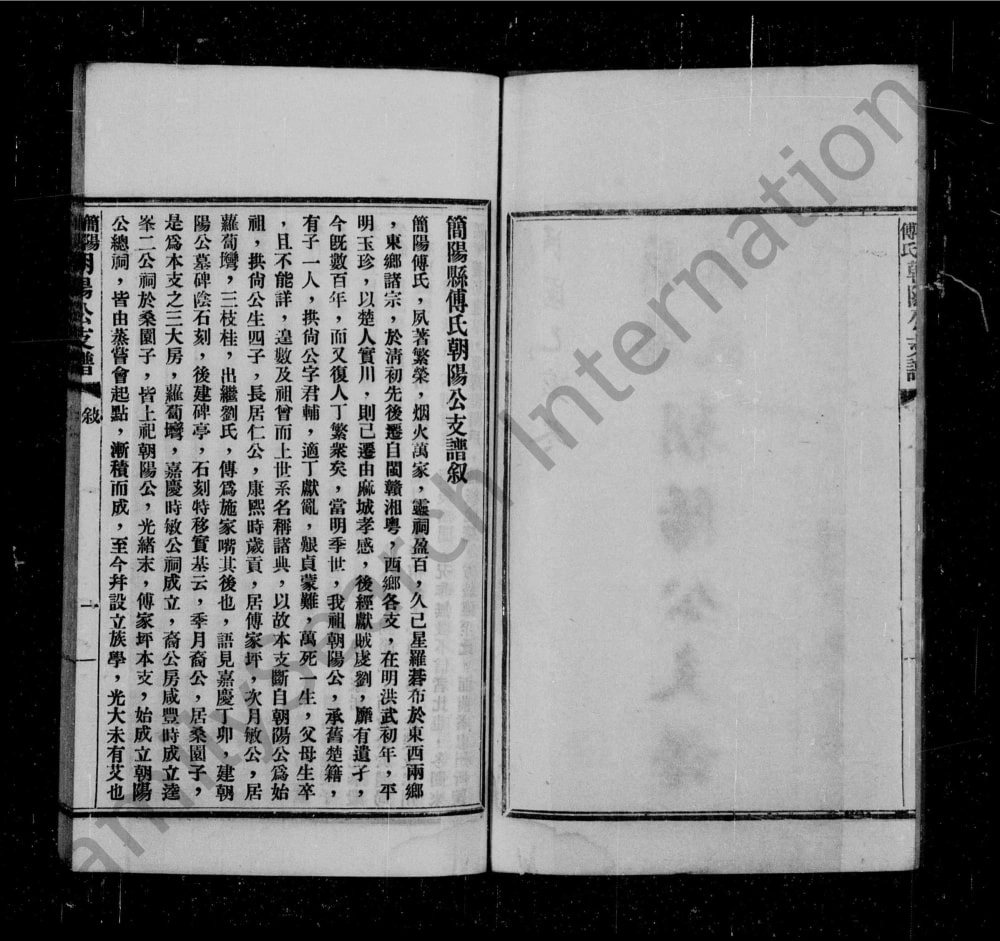 傅氏朝陽公支譜
簡陽縣傅氏朝陽公支譜叙
簡陽傅氏，夙著繁榮，烟火萬家，靈祠盈百，久已星羅碁布於東西兩鄉
，東鄉諸宗，於清初先後遷自閩贛湘粵，西鄉各支，在明洪武初年，平
明玉珍，以楚人實川，則已遷由麻城孝感，後經獻賊虔劉，靡有遺孑，
今既數百年，而又復人丁繁衆矣，當明季世，我祖朝陽公，承舊楚籍，
有子一人，拱尙公字君輔，適丁獻亂，艱貞蒙難，萬死一生，父母生卒
，且不能詳，遑數及祖曾而上世系名稱諸典，以故本支斷自朝陽公爲始
祖，拱尙公生四子，長居仁公，康熙時歲貢，居傅家坪，次月敏公，居
蘿蔔壪，三枝桂，出繼劉氏，傳爲施家嘴其後也，語見嘉慶丁卯，建朝
陽公墓碑陰石刻，後建碑亭，石刻特移實基云，季月裔公，居桑園子，
是爲本支之三大房，蘿蔔壪，嘉慶時敏公祠成立，裔公房咸豐時成立逵
峯二公祠於桑園子，皆上祀朝陽公，光緒末，傅家坪本支，始成立朝陽
公總祠，皆由蒸嘗會起點，漸積而成，至今幷設立族學，光大未有艾也
簡陽朝陽公支譜
敍
一
FamilySearch International